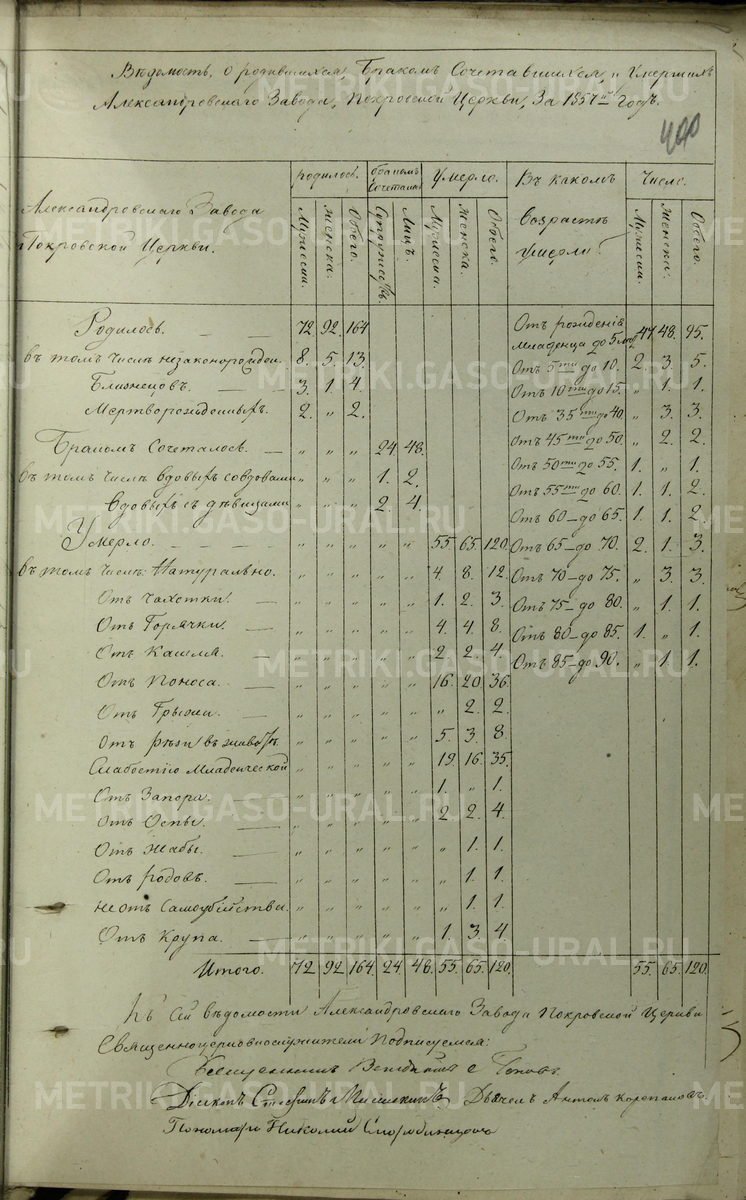 Вѣдомость, о родившихся, Бракомъ Сочетавшихся, и Умершихъ
Александровскаго Завода, Покровской Церкви, За 1857й годъ.
400
Александровскаго Завода Покровской Церкви. родилось. бракомъ Сочеталось Умерло. Въ какомъ возрастѣ умерли? Число.
Мужеска. Женска. Обоего. Супружествъ. Лицъ. Мужеска. Женска. Обоего. Мужеска. Женска. Обоего.
Родилось. 72. 92. 164 Отъ рожденія младенца до 5 лѣтъ 47 48. 95.
въ томъ числѣ незаконорожден. 8. 5. 13. Отъ 5ти до 10. 2. 3. 5.
Близнецовъ. 3. 1. 4. Отъ 10ти до 15. „ 1. 1.
Мертворожденныхъ. 2. „ 2. Отъ 35ти до 40. „ 3. 3.
Бракомъ Сочеталось. „ „ „ 24 48. Отъ 45ти до 50. „ 2. 2.
въ томъ числѣ вдовыхъ со вдовами „ „ „ 1. 2. Отъ 50ти до 55. 1. „ 1.
вдовыхъ съ дѣвицами „ „ „ 2. 4. Отъ 55ти до 60. 1. 1. 2.
Отъ 60 до 65. 1. 1. 2.
Умерло. „ „ „ „ „ 55. 65. 120. Отъ 65 до 70. 2. 1. 3.
въ томъ числѣ: Натурально. „ „ „ „ „ 4. 8. 12. Отъ 70 до 75. „ 3. 3.
Отъ Чахотки. „ „ „ „ „ 1. 2. 3. Отъ 75 до 80. „ 1. 1.
Отъ Горячки. „ „ „ „ „ 4. 4. 8. Отъ 80 до 85. 1. „ 1.
Отъ Кашля. „ „ „ „ „ 2. 2. 4. Отъ 85 до 90. „ 1. 1.
Отъ Поноса. „ „ „ „ „ 16. 20 36.
Отъ Грыжи. „ „ „ „ „ „ 2. 2.
Отъ рѣзи въ животѣ. „ „ „ „ „ 5. 3. 8.
Слабостію Младенческой „ „ „ „ „ 19. 16. 35.
Отъ Запора. „ „ „ „ „ 1. „ 1.
Отъ Оспы. „ „ „ „ „ 2. 2. 4.
Отъ Жабы. „ „ „ „ „ „ 1. 1.
Отъ родовъ. „ „ „ „ „ „ 1. 1.
не отъ Самоубійства. „ „ „ „ „ „ 1. 1.
Отъ Крупа. „ „ „ „ „ 1. 3. 4
Итого. 72. 92. 164. 24. 48. 55. 65. 120. 55. 65. 120.
Къ Сей вѣдомости Александровскаго Завода Покровской Церкви
Священноцерковнослужители Подписуемся:
Священникъ Поповъ
Діаконъ Стефанъ Дьячекъ Антонъ
Пономарь Николай
METRIKI.GASO-URAL.RU